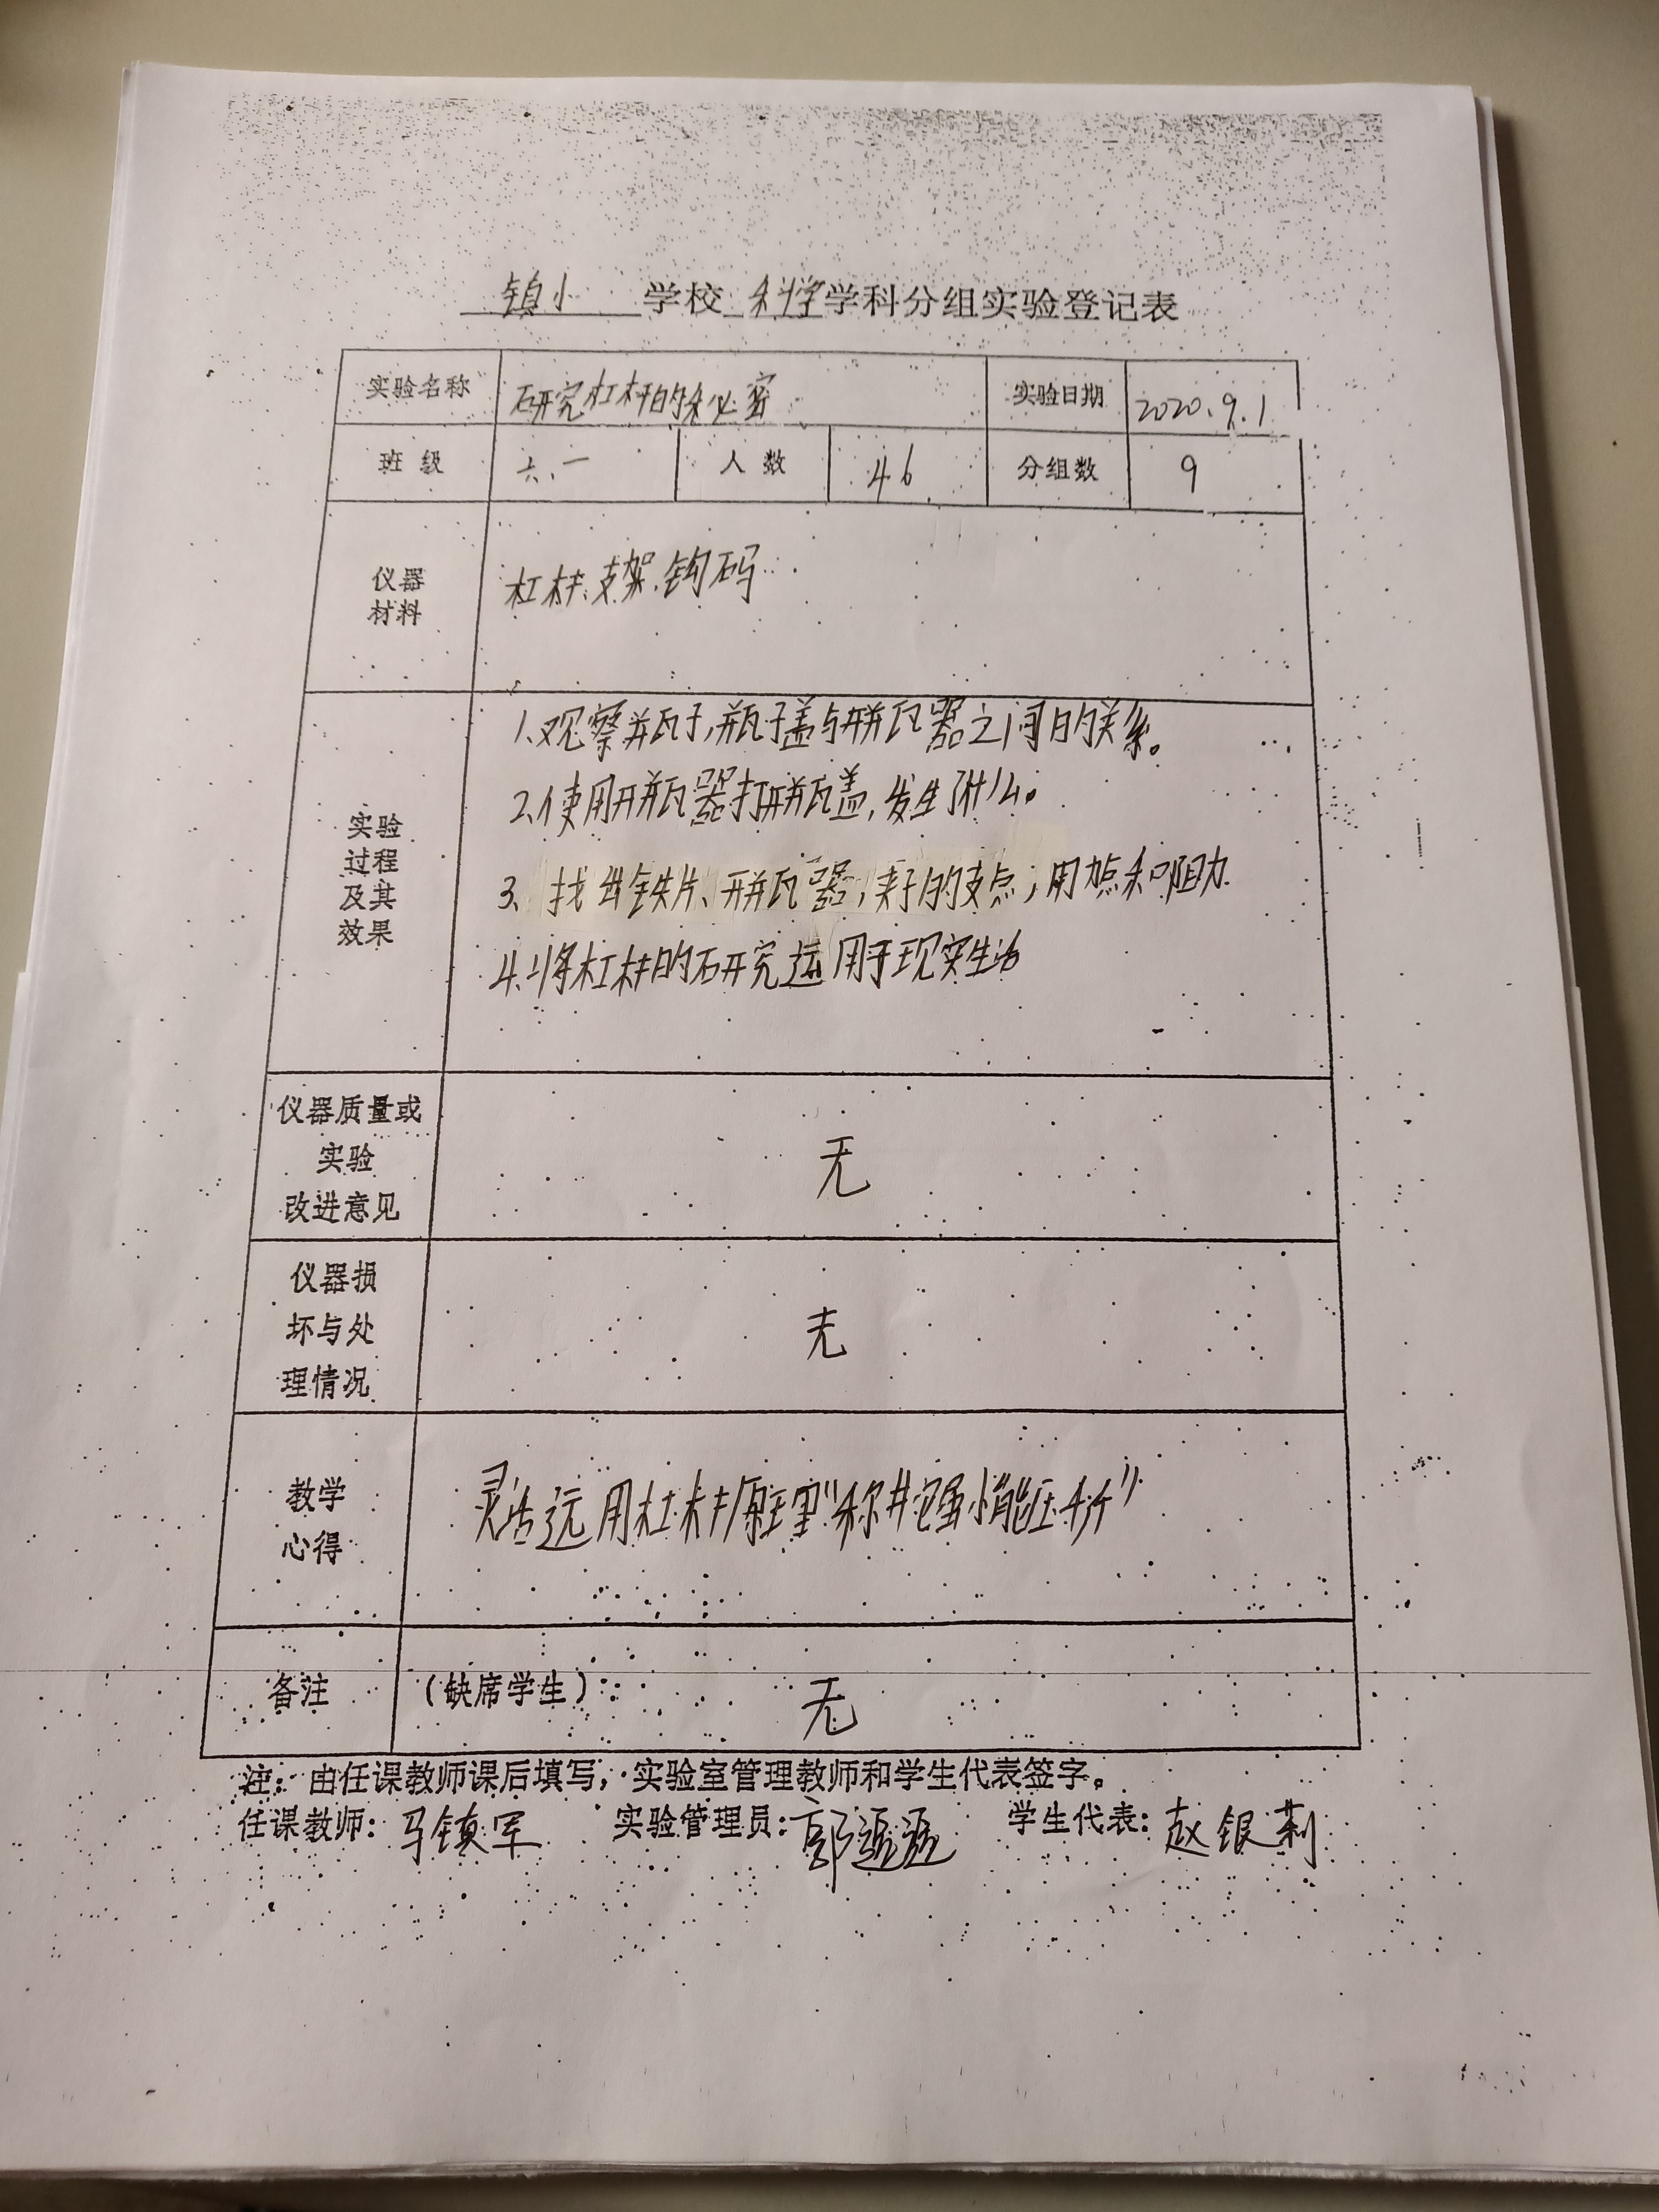 镇小 学校 科学 学科分组实验登记表
实验名称 研究杠杆的秘密 实验日期 2020.9.1
班级 六.一 人数 46 分组数 9
仪器
材料
杠杆.支架.钩码
实验
过程
及其
效果
1.观察瓶子,瓶子盖与开瓶器之间的关系。
2.使用开瓶器打开瓶盖,发生了什么。
3.找出铁片、开瓶器,钉子的支点,用力点和阻力
4.将杠杆的研究运用于现实生活
仪器质量或
实验
改进意见
无
仪器损
坏与处
理情况
无
教学
心得
灵活运用杠杆原理“称砣虽小能压千斤”
备注 (缺席学生): 无
注:由任课教师课后填写,实验室管理教师和学生代表签字。
任课教师: 马镇军 实验管理员: 郭 学生代表: 赵银莉